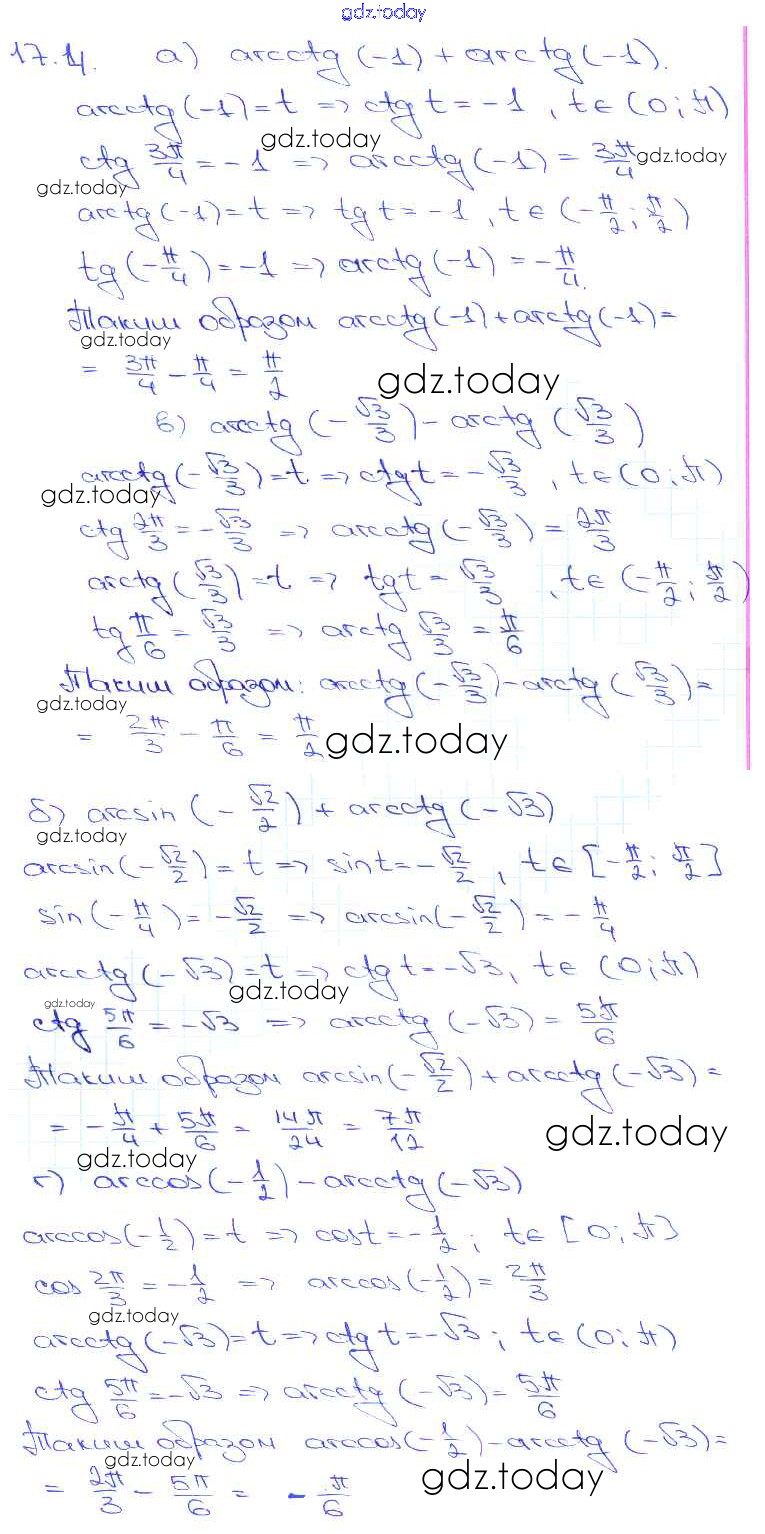 gdz.today
17.4. а) arcctg (-1) + arctg (-1).
arcctg (-1) = t => ctg t = -1, t ∈ (0; π)
gdz.today
ctg 3π/4 = -1 => arcctg (-1) = 3π/4
gdz.today
gdz.today
arctg (-1) = t => tg t = -1, t ∈ (-π/2; π/2)
tg (-π/4) = -1 => arctg (-1) = -π/4.
Таким образом arcctg (-1) + arctg (-1) =
gdz.today
= 3π/4 - π/4 = π/2
gdz.today
в) arcctg (-√3/3) - arctg (√3/3)
arcctg (-√3/3) = t. => ctg t = -√3/3, t ∈ (0; π)
gdz.today
ctg 2π/3 = -√3/3 => arcctg (-√3/3) = 2π/3
arctg (√3/3) = t => tg t = √3/3, t ∈ (-π/2; π/2)
tg π/6 = √3/3 => arctg √3/3 = π/6
Таким образом: arcctg (-√3/3) - arctg (√3/3) =
gdz.today
= 2π/3 - π/6 = π/2
gdz.today
б) arcsin (-√2/2) + arcctg (-√3)
gdz.today
arcsin (-√2/2) = t => sin t = -√2/2, t ∈ [-π/2; π/2]
sin (-π/4) = -√2/2 => arcsin (-√2/2) = -π/4
arcctg (-√3) = t => ctg t = -√3, t ∈ (0; π)
gdz.today
gdz.today
ctg 5π/6 = -√3 => arcctg (-√3) = 5π/6
Таким образом arcsin (-√2/2) + arcctg (-√3) =
= -π/4 + 5π/6 = 14π/24 = 7π/12
gdz.today
gdz.today
г) arccos (-1/2) - arcctg (-√3)
arccos (-1/2) = t => cos t = -1/2; t ∈ [0; π]
cos 2π/3 = -1/2 => arccos (-1/2) = 2π/3
gdz.today
arcctg (-√3) = t => ctg t = -√3; t ∈ (0; π)
ctg 5π/6 = -√3 => arcctg (-√3) = 5π/6
Таким образом arccos (-1/2) - arcctg (-√3) =
gdz.today
= 2π/3 - 5π/6 = -π/6
gdz.today